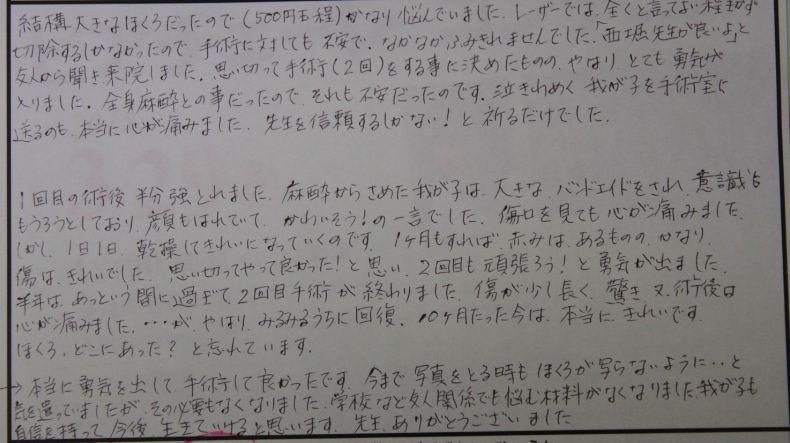 結構大きなほくろだったので(500円玉程)かなり悩んでいました。レーザーでは、全くと言ってよい程きかず
切除するしかなかったので、手術に対しても不安で、なかなかふみきれませんでした。「西堀先生が良いよ」と
友人から聞き来院しました。思い切って手術(2回)をする事に決めたものの、やはり、とても勇気が
入りました。全身麻酔との事だったので、それも不安だったのです。泣きわめく我が子を手術室に
送るのも、本当に心が痛みました。先生を信頼するしかない!と祈るだけでした。
1回目の術後半分強とれました。麻酔からさめた我が子は、大きなバンドエイドをされ、意識も
もうろうとしており、顔もはれていて、かわいそう!の一言でした。傷口を見ても心が痛みました。
しかし、1日1日、乾燥してきれいになっていくのです。1ヶ月もすれば、赤みは、あるものの、かなり
傷は、きれいでした。思い切ってやって良かった!と思い、2回目も頑張ろう!と勇気が出ました。
半年は、あっという間に過ぎて、2回目手術が終わりました。傷が少し長く、驚き、又、術後は
心が痛みました。…が、やはり、みるみるうちに回復。10ヶ月たった今は、本当にきれいです。
ほくろ、どこにあった?と忘れています。
→本当に勇気を出して、手術して良かったです。今まで写真をとる時も、ほくろが写らないように…と
気を遣っていましたが、その必要もなくなりました。学校など友人関係でも悩む材料がなくなりました。我が子も
自信を持って、今後、生きていけると思います。先生、ありがとうございました